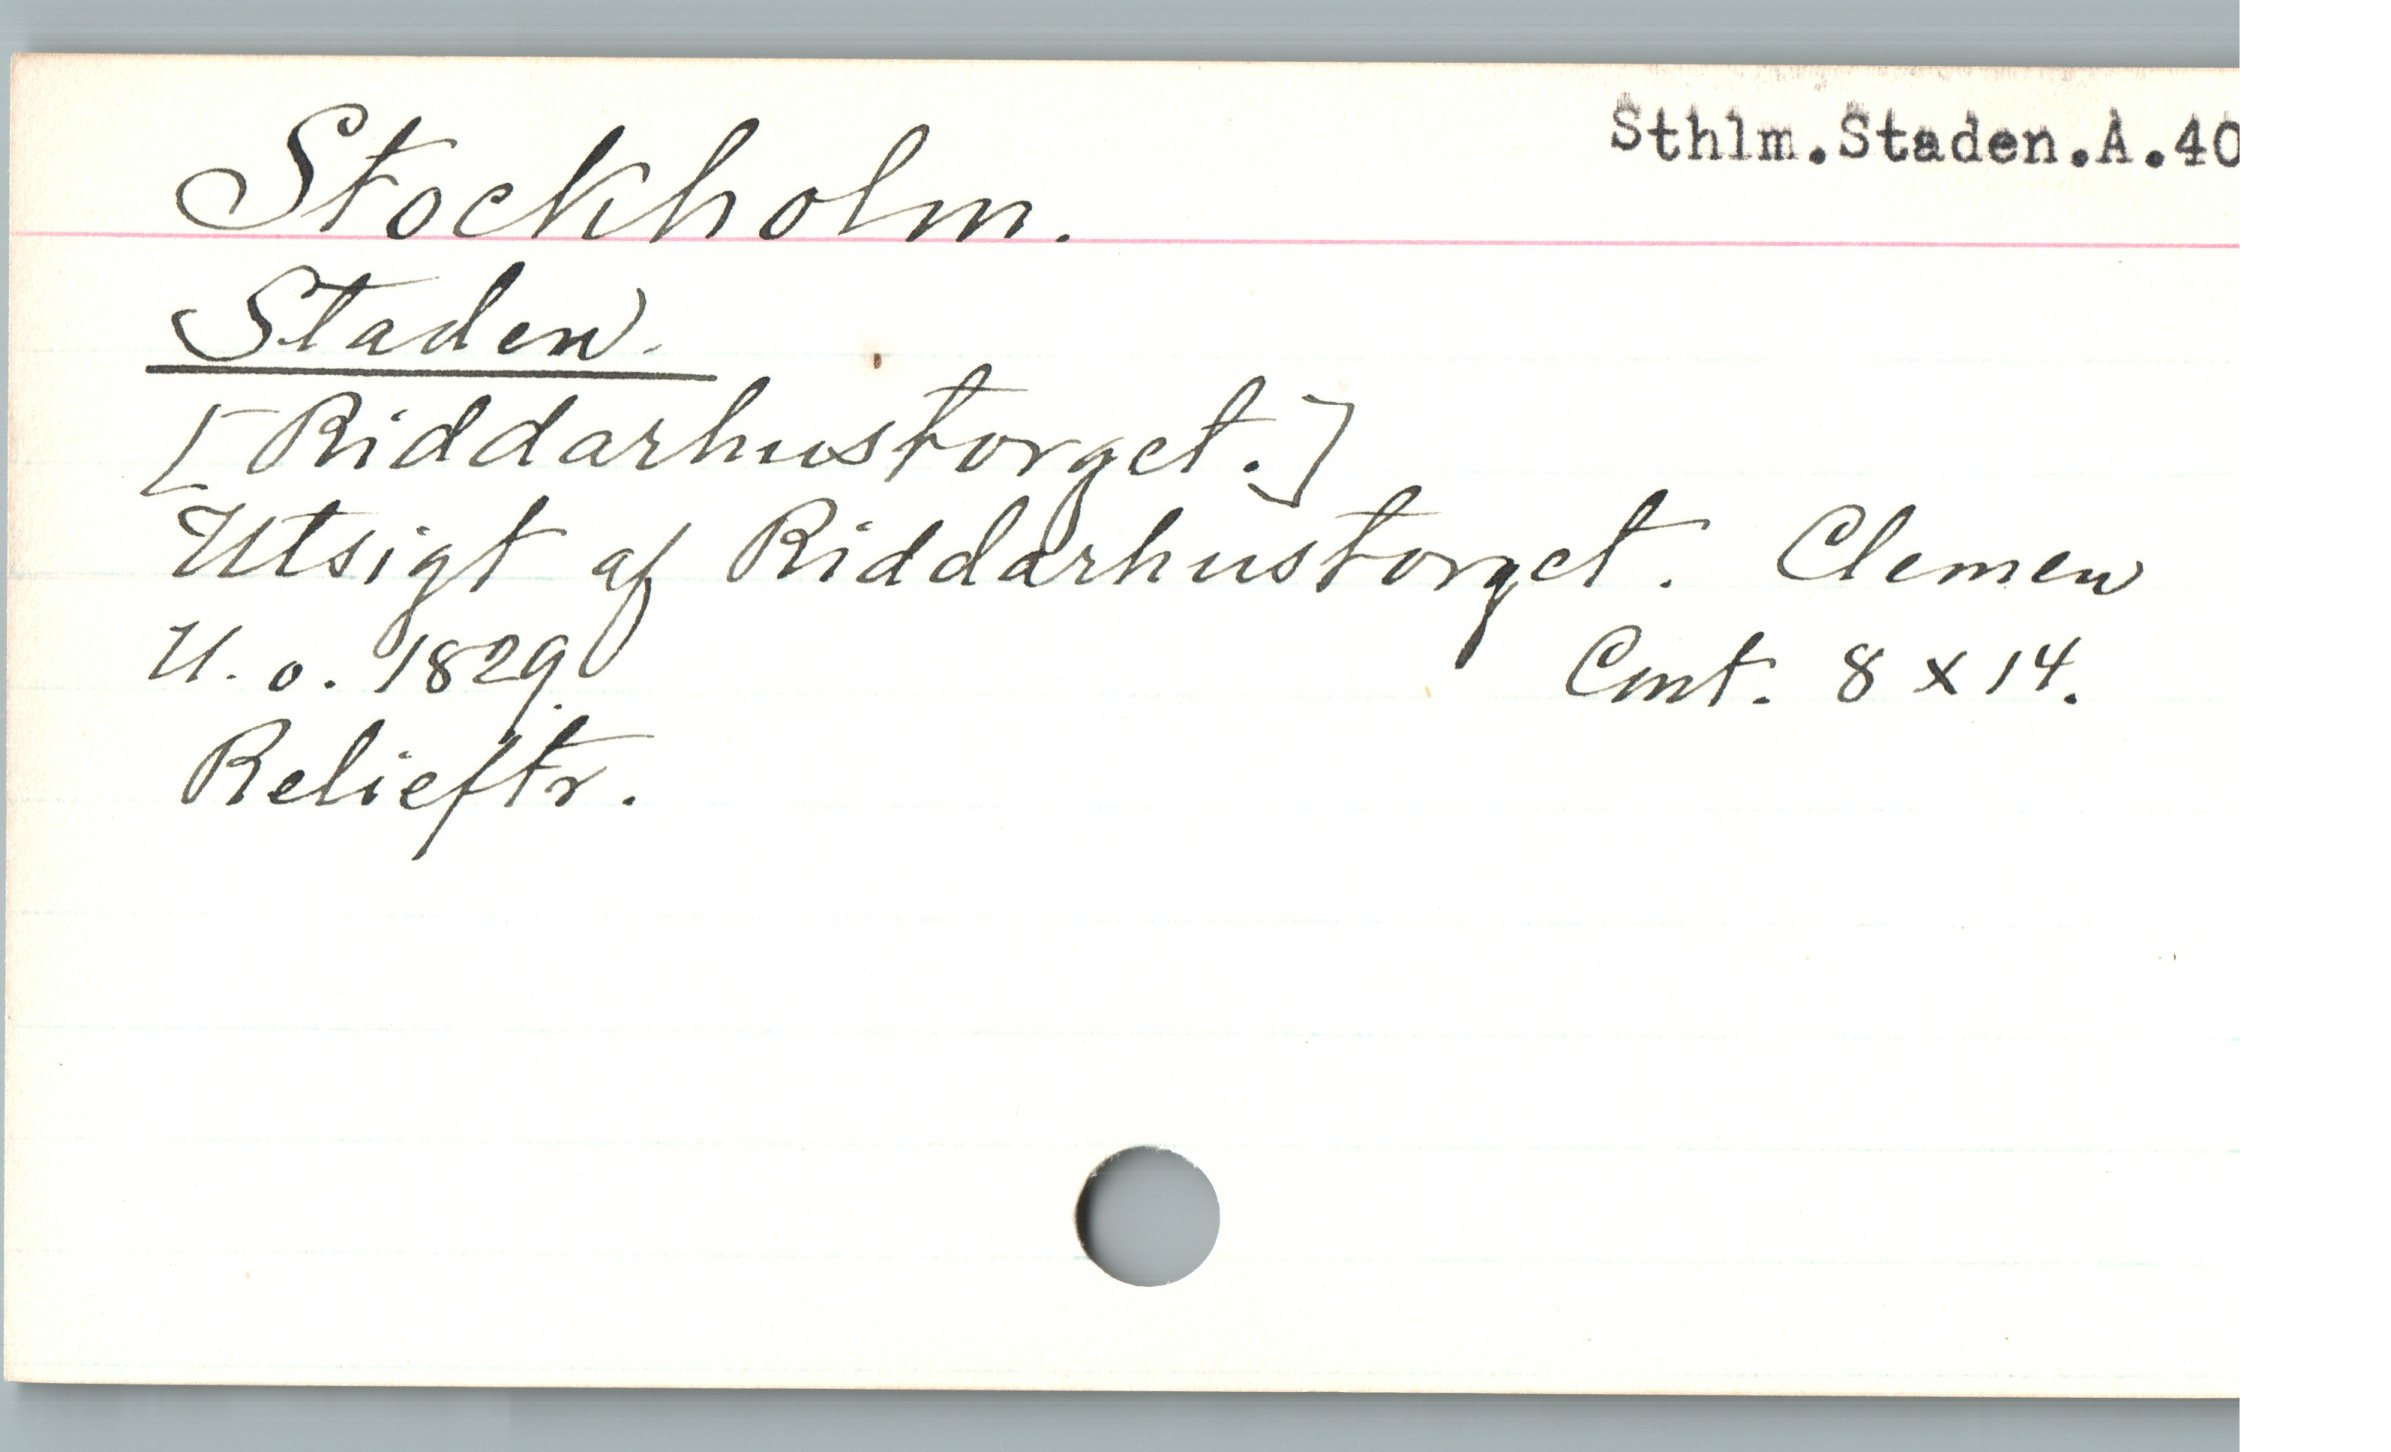 Stockholm.
Sthlm.Staden.A.40
Staden.
[Riddarhustorget.]
Utsigt af Riddarhustorget. Clemen
U. o. 1829. Cont. 8 x 14.
Relieftr.